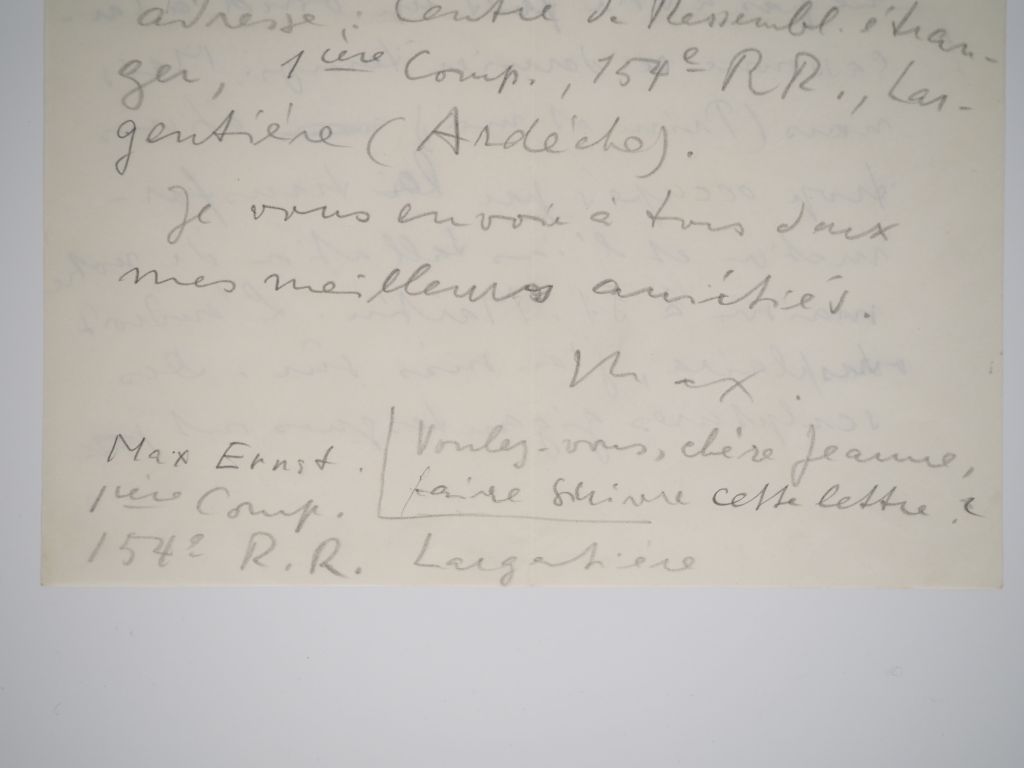 adresse : Centre de Rassembl. étran-
ger, 1ière Comp., 154e R.R., Lar-
gentière (Ardèche).
Je vous envoie à tous deux
mes meilleures amitiés.
Max
Voulez-vous, chère Jeanne,
faire suivre cette lettre ?
Max Ernst.
1ière Comp.
154e R.R. Largentière